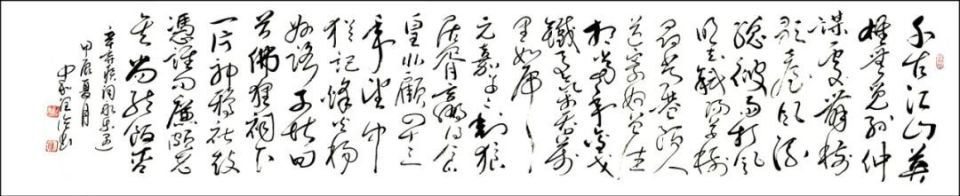 千古江山英
雄無覓孫仲
謀處舞榭
歌臺風流
總被雨打風
吹去斜陽草樹
尋常巷陌人
道寄奴曾住
想當年金戈
鐵馬氣吞萬
里如虎
元嘉草草封狼
居胥贏得倉
皇北顧四十三
年望中
猶記烽火揚
州路可堪回
首佛狸祠下
一片神鴉社鼓
憑誰問廉頗老
矣尚能飯否
辛棄疾詞永遇樂
甲辰夏月
書